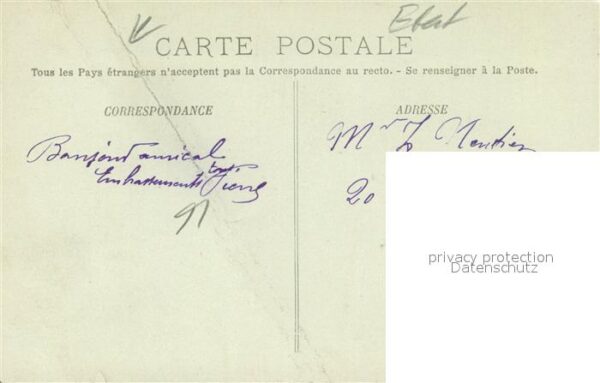 Etat
CARTE POSTALE
Tous les Pays étrangers n'acceptent pas la Correspondance au recto. - Se renseigner à la Poste.
CORRESPONDANCE
ADRESSE
Mr
Bonjour amical
Embrassements
20
privacy protection
Datenschutz